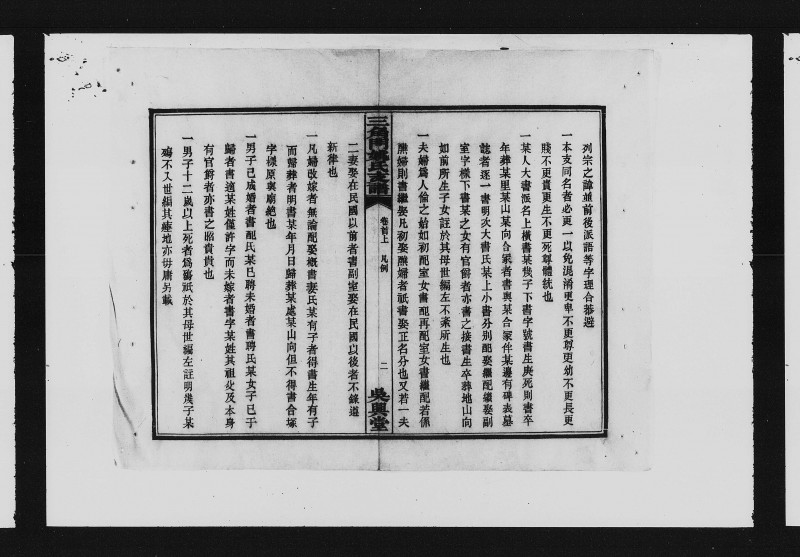 列宗之諱並前後派語等字理合恭避
一本支同名者必更一以免混淆更卑不更尊更幼不更長更
賤不更貴更生不更死尊體統也
一某人大書派名上橫書某幾子下書字號書生庚死則書卒
年葬某里某山某向合冢者書與某合冢伴某邊有碑表墓
誌者逐一書明次大書氏某上小書分別配娶繼配繼娶副
室字樣下書某之女有官爵者亦書之接書生卒葬地山向
如前所生子女註於其母世編左不紊所生也
一夫婦爲人倫之始如初配室女書配再配室女書繼配若係
醮婦則書繼娶凡初娶醮婦者祇書娶正名分也又若一夫
三角閘姚氏支譜
卷首上 凡例
二
吳興堂
二妻娶在民國以前者書副室娶在民國以後者不錄遵
新律也
一凡婦改嫁者無論配娶概書妻氏某有子者得書生年有子
而歸葬者明書某年月日歸葬某處某山向但不得書合塚
字樣原與廟絶也
一男子已成婚者書配氏某已聘未婚者書聘氏某女子已于
歸者書適某姓僅許字而未嫁者書字某姓其祖父及本身
有官爵者亦書之昭貴貴也
一男子十二歲以上死者爲殤祇於其母世編左註明幾子某
殤不入世編其塟地亦毋庸另載